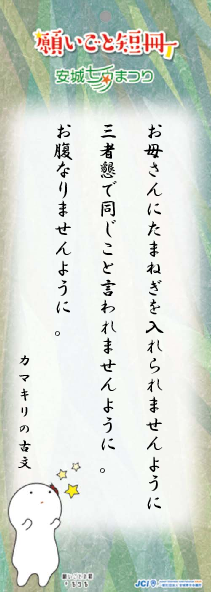 願いごと短冊
安城七夕まつり
お母さんにたまねぎを入れられませんように
三者懇で同じこと言われませんように。
お腹なりませんように。
カマキリの古文
JCI